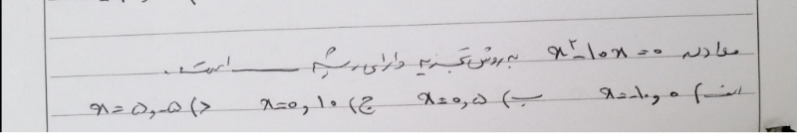 معادله x²-10x=0 به روش تجزیه دارای ریشه ــــــ است.
الف) x=-10,0 ب) x=0,5 ج) x=0,10 د) x=5,-5